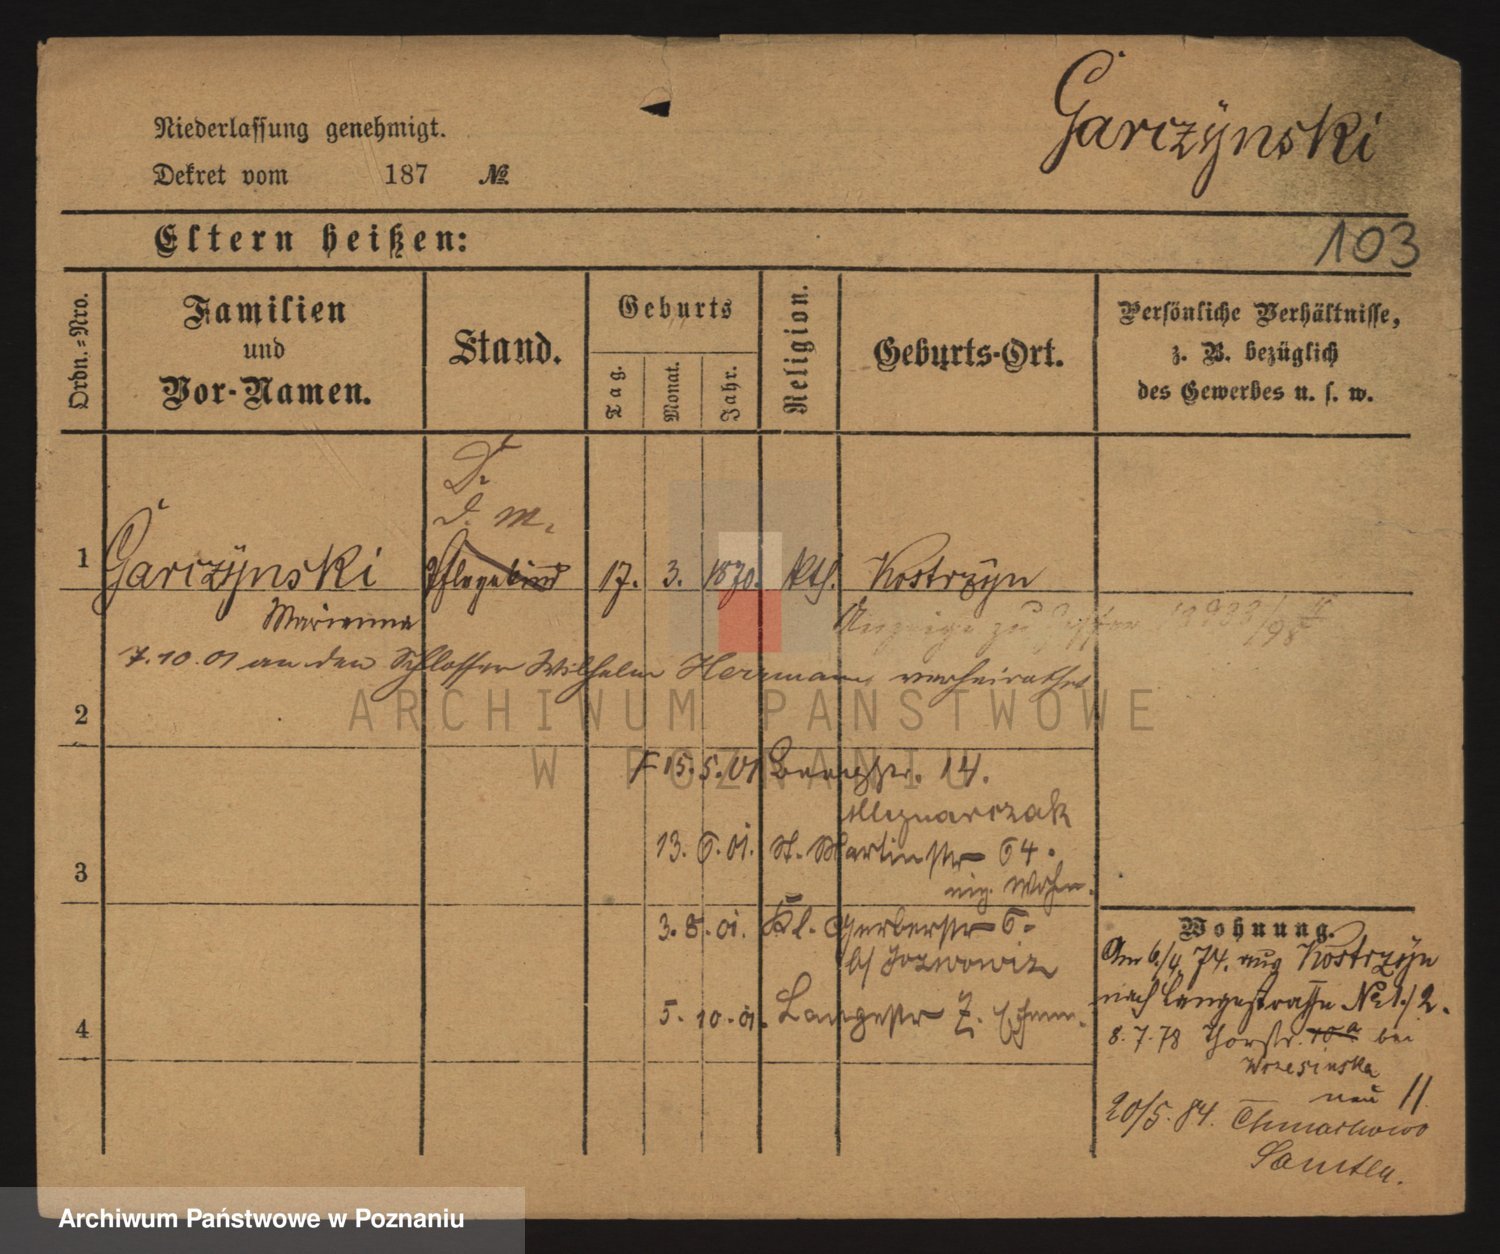 Garczÿnski
Niederlassung genehmigt.
Dekret vom 187 №
103
Eltern heißen:
Ordn.-Nro.
Familien
und
Vor-Namen.
Stand.
Geburts
Tag.
Monat.
Jahr.
Religion.
Geburts-Ort.
Persönliche Verhältnisse,
z. B. bezüglich
des Gewerbes u. s. w.
D. M.
1 Garczÿnski Pflegekind 17. 3. 1870. kth. Kostrzÿn
Marianna
Anzeige zu
7.10.01 an den Schlosser Wilhelm Herrmann verheirathet
2
15.5.01 14.
Mlynarczak
13. 6.01. St. Martinstr 64.
3
eig. Wohn.
3.8.01. Kl. Gerberstr 6.
b/ Jozwowiz
4
5.10.01. Langestr 7.
Wohnung.
Am 6./4. 74. aus Kostrzÿn
nach Langestraße № 1./2.
8.7.78 Thorstr. 10a bei
Wrzesinska
neu 11
20/5.84. Chmarkowo
Samter.
ARCHIWUM PAŃSTWOWE
W POZNANIU
Archiwum Państwowe w Poznaniu